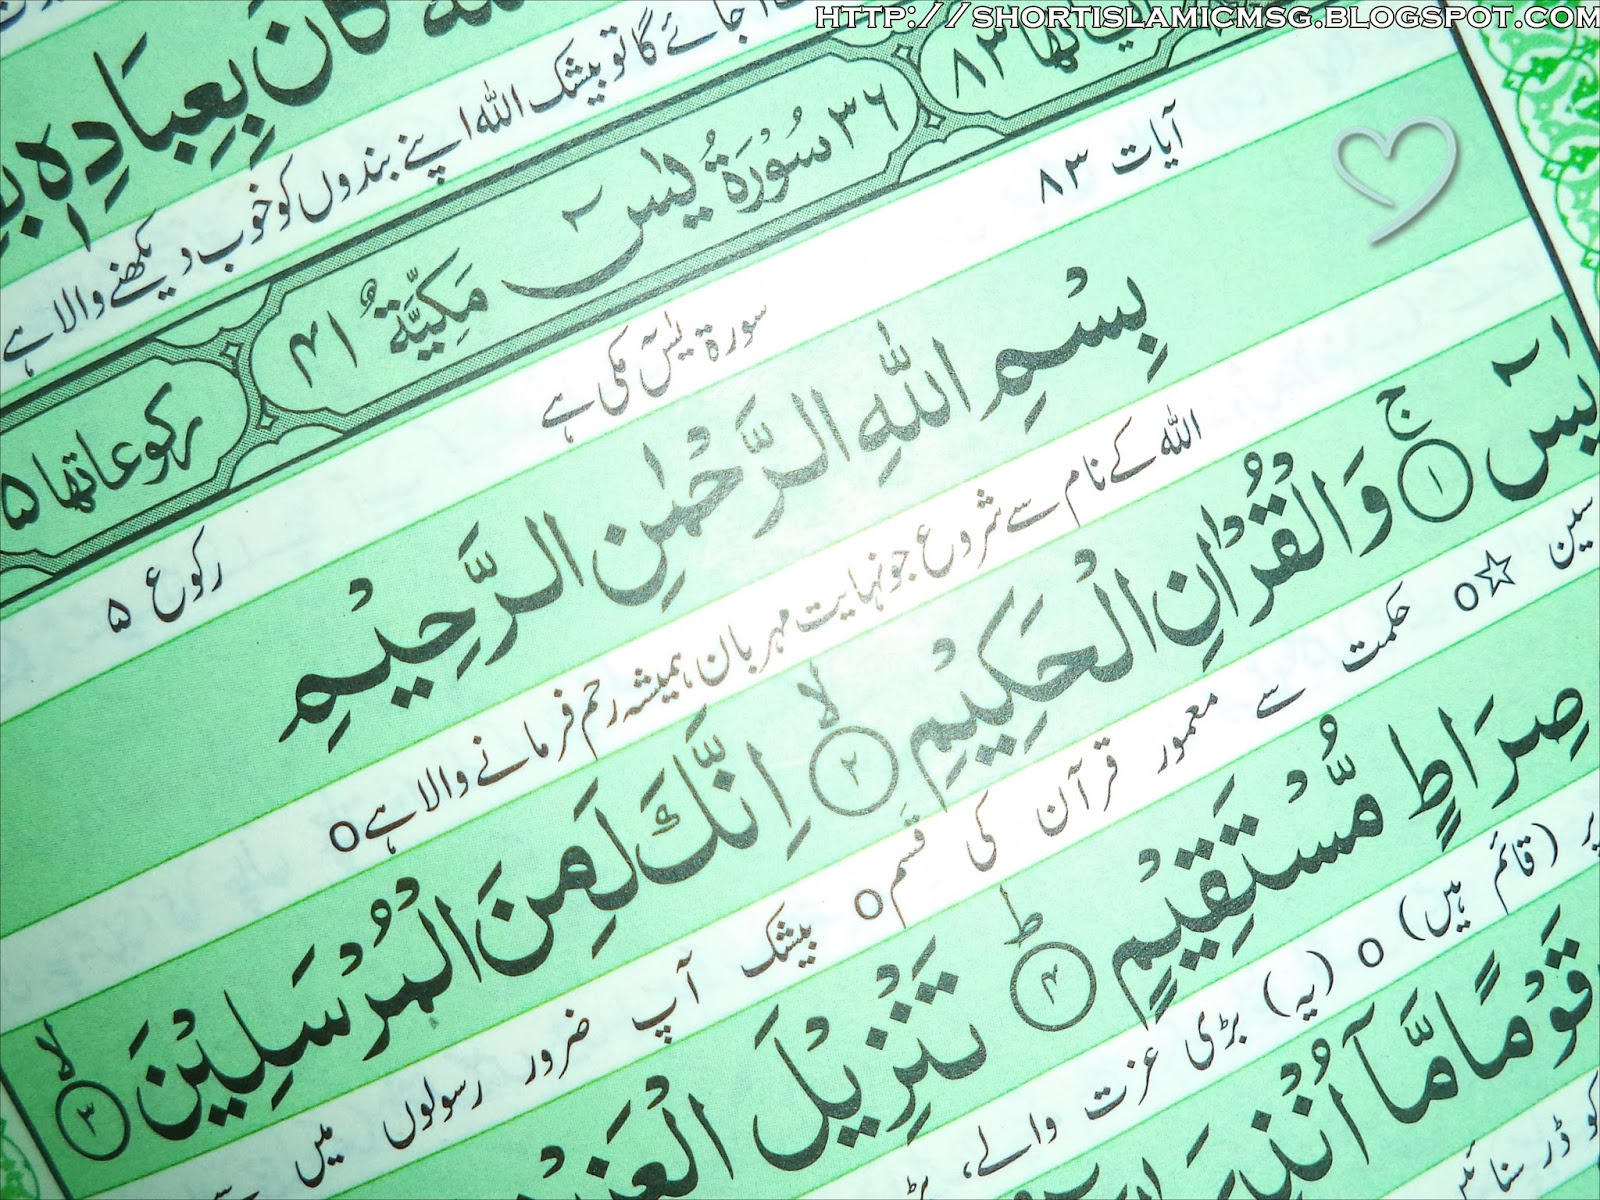 HTTP://SHORTISLAMICMSG.BLOGSPOT.COM
كَانَ بِعِبَادِهٖ
جائے گا تو بیشک اللہ اپنے بندوں کو خوب دیکھنے والا ہے
٨٣
٣٦ سُوْرَةُ يٰسٓ مَكِّيَّةٌ ٤١
رکوعاتها ٥
آیات ۸۳
سورۃ یٰسٓ مکی ہے
رکوع ۵
بِسْمِ اللّٰهِ الرَّحْمٰنِ الرَّحِيْمِ
اللہ کے نام سے شروع جو نہایت مہربان ہمیشہ رحم فرمانے والا ہے o
يٰسٓ ۚ ١ وَالْقُرْاٰنِ الْحَكِيْمِ ۙ ٢ اِنَّكَ لَمِنَ الْمُرْسَلِيْنَ ۙ ٣
سین ☆ o حکمت سے معمور قرآن کی قسم o بیشک آپ ضرور رسولوں میں سے
صِرَاطٍ مُّسْتَقِيْمٍ ؕ ٤ تَنْزِيْلَ
پر (قائم ہیں) o (یہ) بڑی عزت والے،
قَوْمًا مَّآ